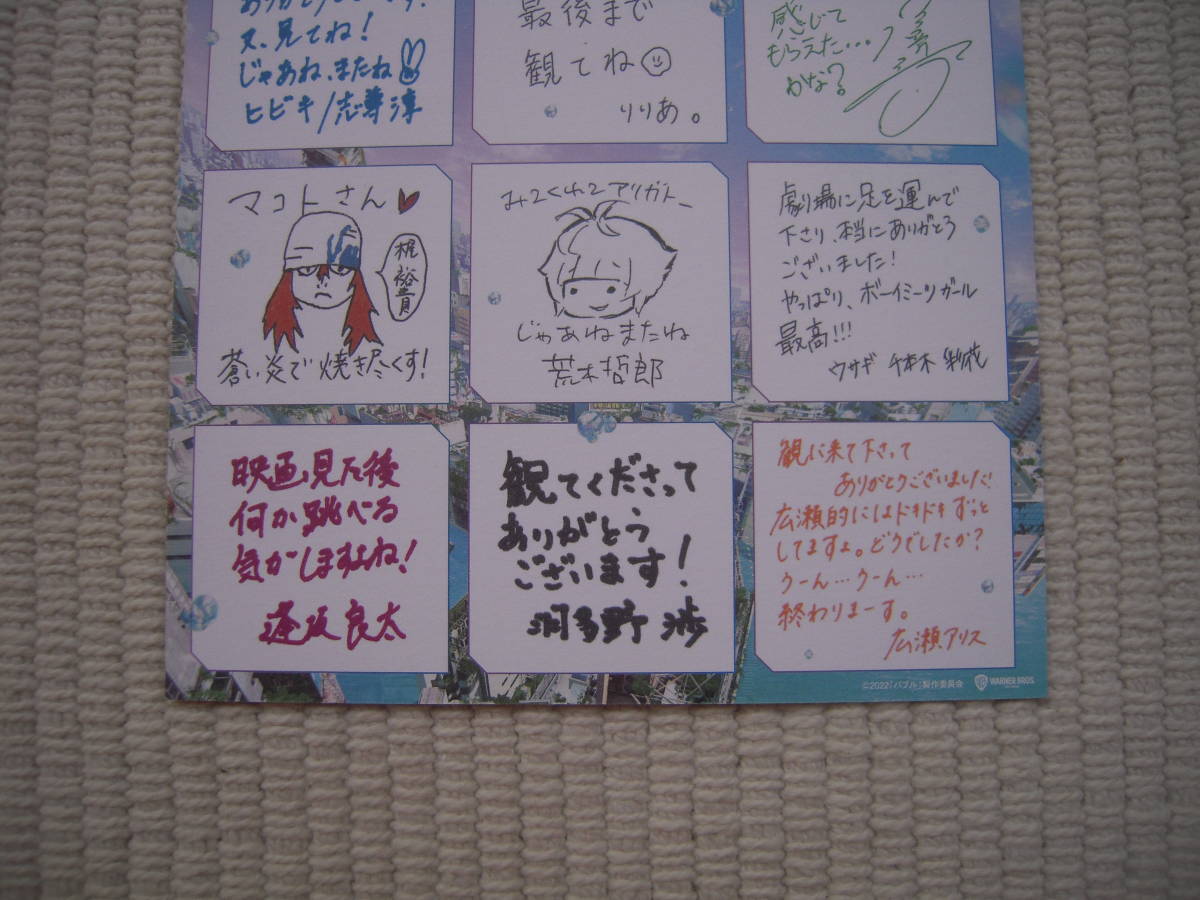 ありがとうございます!
又、見てね!
じゃあね、またね
ヒビキ/志尊淳
最後まで
観てね
りりあ。
感じて
もらえた…
かな?
マコトさん
梶裕貴
蒼い炎で焼き尽くす!
みてくれてアリガトー
じゃあねまたね
荒木哲郎
劇場に足を運んで
下さり、本当にありがとう
ございました!
やっぱり、ボーイミーツガール
最高!!!
ウサギ 千本木彩花
映画見た後
何か跳べる
気がしますよね!
逢坂良太
観てくださって
ありがとう
ございます!
羽多野 渉
観に来て下さって
ありがとうございました!
広瀬的にはドキドキずっと
してますよ。どうでしたか?
うーん…うーん…
終わりまーす。
広瀬アリス
©2022「バブル」製作委員会
WARNER BROS.